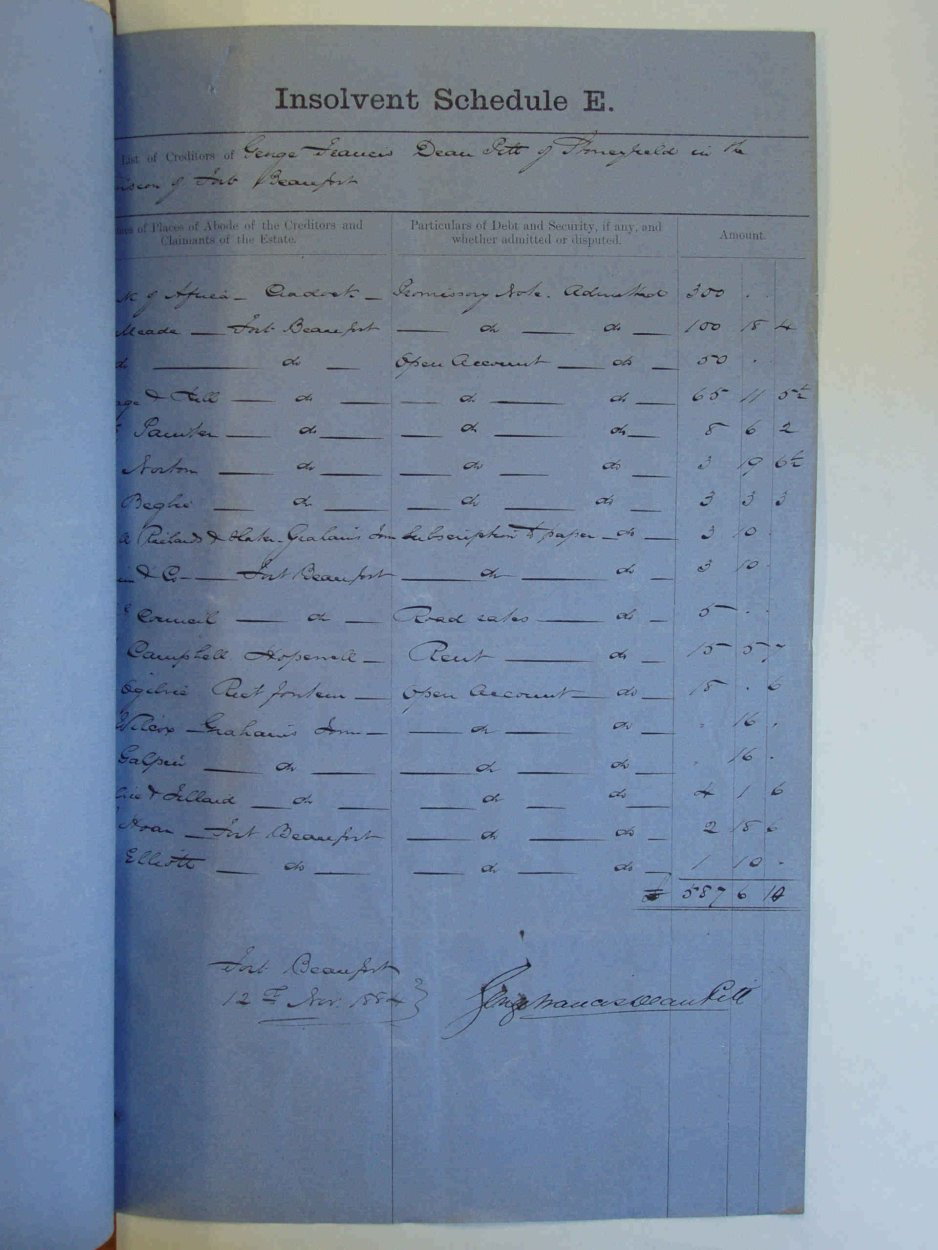 Insolvent Schedule E.
List of Creditors of George Francis Dean Pitt of Stoneyfield in the
ision of Fort Beaufort
es of Places of Abode of the Creditors and Claimants of the Estate. Particulars of Debt and Security, if any, and whether admitted or disputed. Amount.
k of Africa – Cradock – Promissory Note. Admitted 350 . .
Meade — Fort Beaufort — do — do — 100 18 4
do — do — Open Account — do — 50 .
age & Hill — do — — do — do — 65 11 5½
Painter — do — — do — do — 8 6 2
Norton — do — — do — do — 3 19 6½
Beghie — do — — do — do — 3 3 3
Richards & Slater – Graham's Town Subscription to paper – do – 3 10 .
& Co — Fort Beaufort — do — do — 3 10 .
Council — do — Road rates — do — 5 . .
Campbell Hopewell – Rent — do — 15 5 7
Ogilvie Riet fontein — Open Account — do — 18 . 6
Wilcox – Graham's Town – — do — do — . 16 .
Galpin — do — — do — do — . 16 .
& Tillard — do — — do — do — 4 1 6
Hoan — Fort Beaufort — do — do — 2 18 6
Elliott — do — — do — do — 1 10 .
£ 587 6 10
Fort Beaufort
12th Nov. 1884 } George Francis Dean Pitt